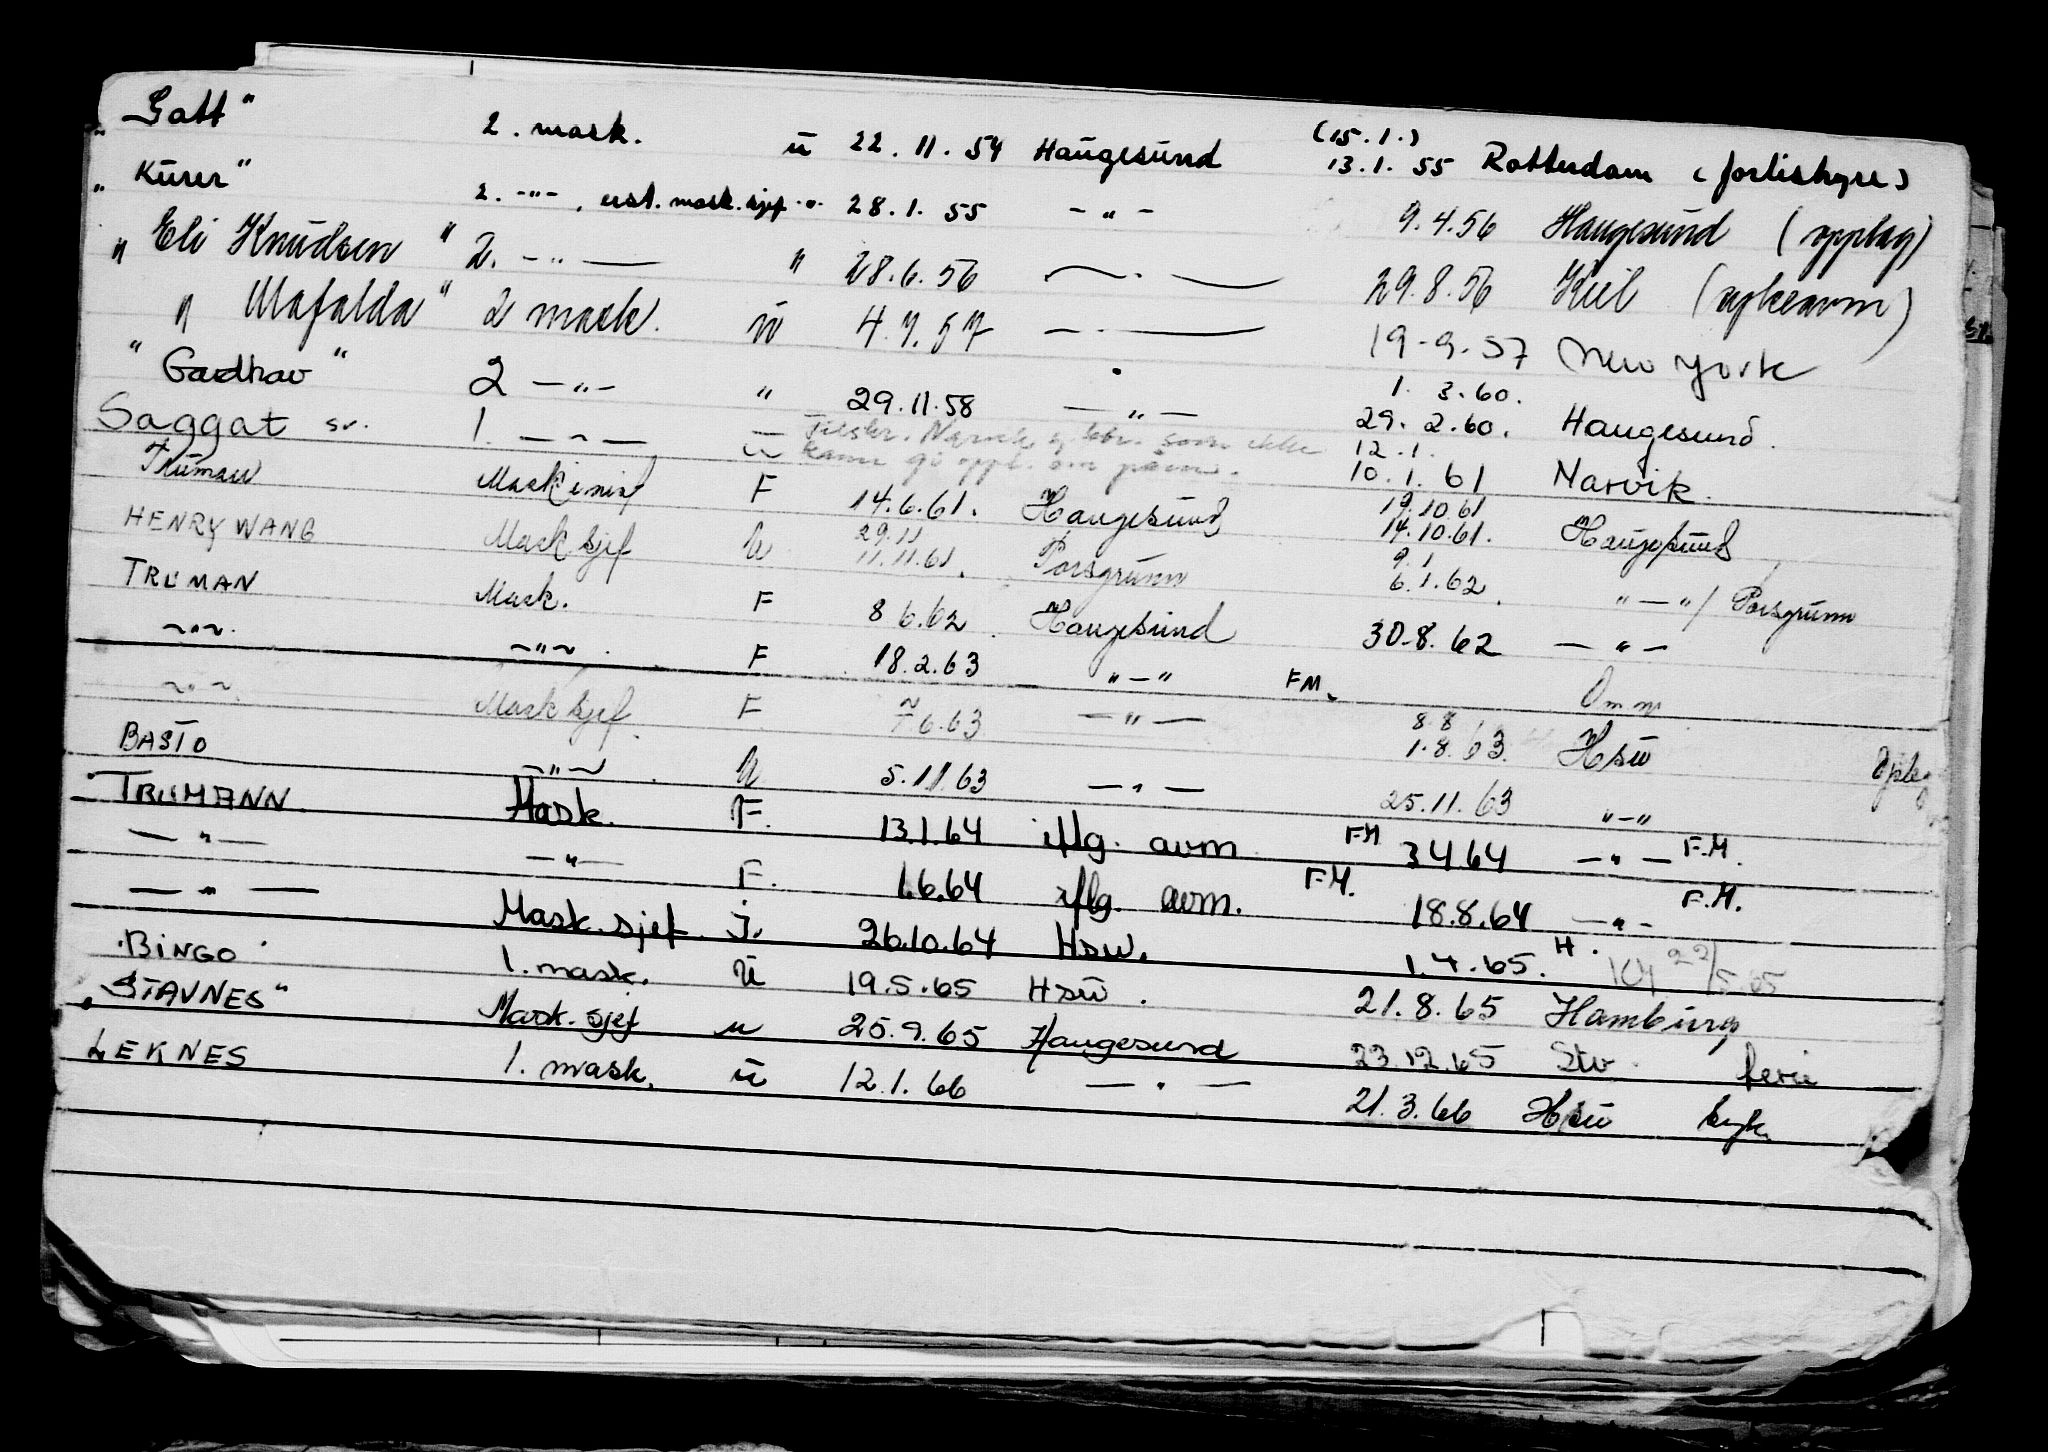 "Gatt" 2. mask. ü 22.11.54 Haugesund (15.1.) 13.1.55 Rotterdam (forlishyre)
"Kurer" 2. -"- , erst. mask.sjef -"- 28.1.55 -"- 9.4.56 Haugesund (opplag)
" Eli Knudsen " 2. -"- " 28.6.56 -"- 29.8.56 Kiel (sykeavm)
" Mafalda " 2 mask. ü 4.7.57 -"- 19-9.57 New York
1. 3.60.
" Gardhav " 2 -"- " 29.11.58 -"- 29. 2.60. Haugesund.
Saggat sv. 1. -"- Tilskr. Narvik som ikke 12.1.
kann gi oppl. om påm. 10.1.61 Narvik.
Truman Maskinist F 14.6.61. Haugesund 19.10.61 14.10.61. Haugesund
HENRY WANG Mask sjef ü 29.11 11.11.61. Porsgrunn 9.1 6.1.62. "-"/ Porsgrunn
TRUMAN Mask. F 8 6.62. Haugesund 30.8.62 -"-
-"-. -"-. F 18.2.63 "-" FM.
-"-. Mask sjef. F 6.63 -"- 8.8 1.8.63. Hsu
BASTO -"-. ü 5.11.63 -"- 25.11.63 "-"
TRUMANN Mask. F. 13.1.64 iflg. avm. FM 3464 -"- F.M.
-"- -"- F. 1.6.64 iflg. avm. F.M. 18.8.64 -"- F.M.
-"- Mask.sjef J. 26.10.64 Hsu. 1.4.65. H. 22/5.65
"BINGO" 1. mask. ü 19.5.65 Hsu. 21.8.65 Hamburg
"STAVNES" Mask.sjef u 25.9.65 Haugesund 23.12.65 Stv. ferie
LEKNES 1. mask. ü 12.1.66 -"- 21.3.66 Hsu syk.